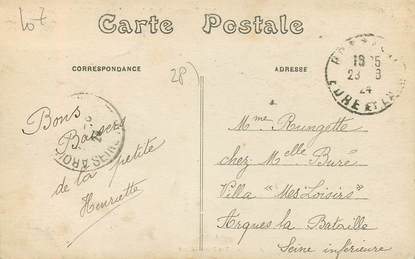 lot
Carte Postale
CORRESPONDANCE
ADRESSE
2P
18 25
23 - 8
24
EURE ET LOIR
Bons
Baisers
de la petite
Henriette
SEINE
Mme Rungette
chez Melle Buré
Villa "Mes Loisirs"
Arques la Bataille
Seine inférieure